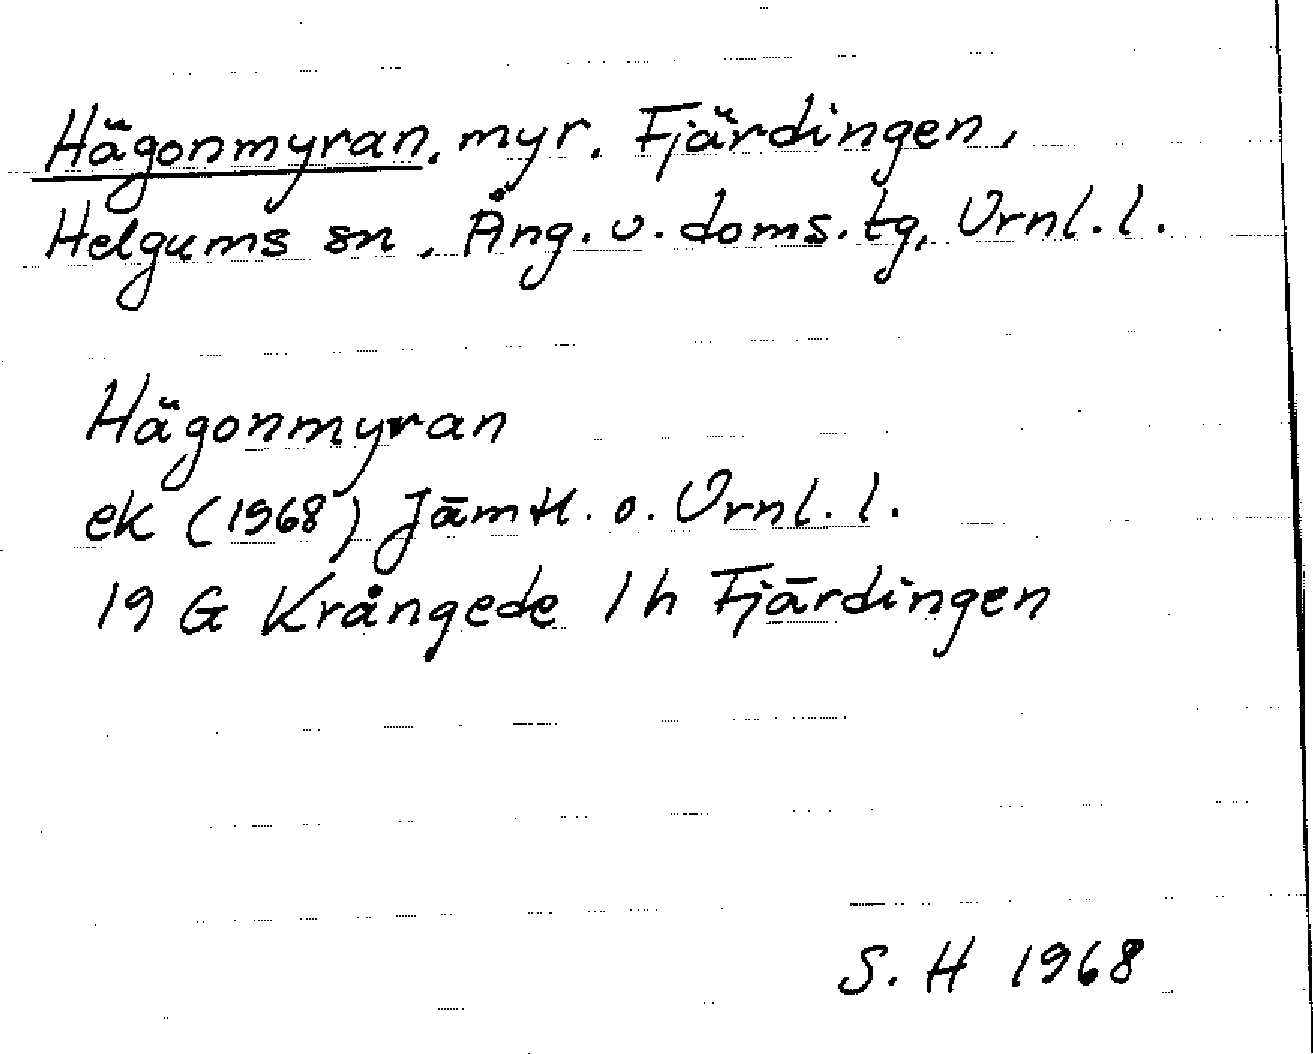 Hägonmyran, myr. Fjärdingen,
Helgums sn, Ång. v. doms. tg, Vrnl. l.
Hägonmyran
ek (1968) Jämtl. o. Vrnl. l.
19 G Krångede 1 h Fjärdingen
S. H 1968